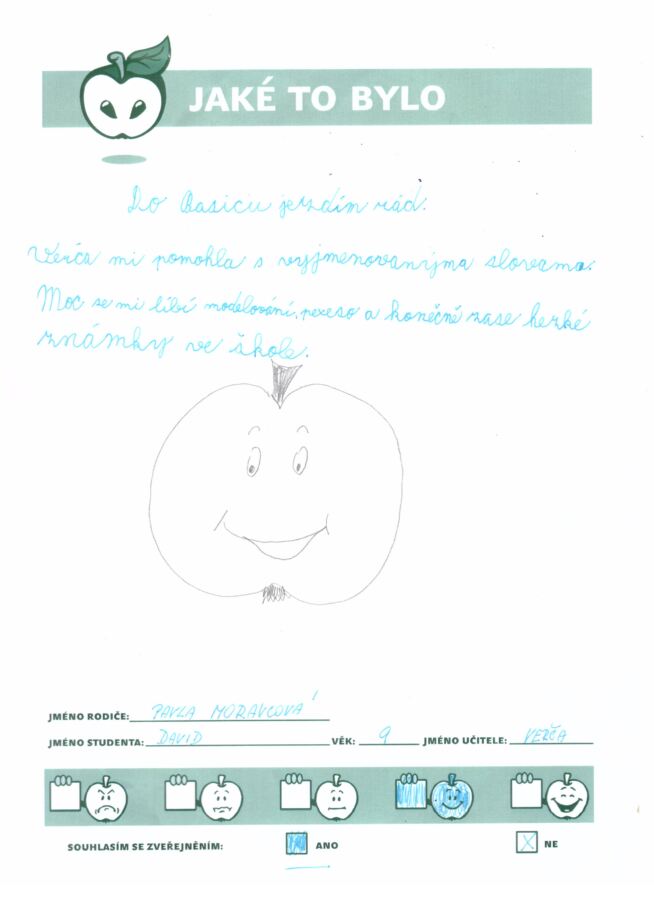 JAKÉ TO BYLO
Do Basicu jezdím rád.
Verča mi pomohla s vyjmenovanýma slovama.
Moc se mi líbí modelování, pexeso a konečně zase hezké
známky ve škole.
JMÉNO RODIČE: PAVLA MORAVCOVÁ
JMÉNO STUDENTA: DAVID VĚK: 9 JMÉNO UČITELE: VERČA
SOUHLASÍM SE ZVEŘEJNĚNÍM: ANO NE